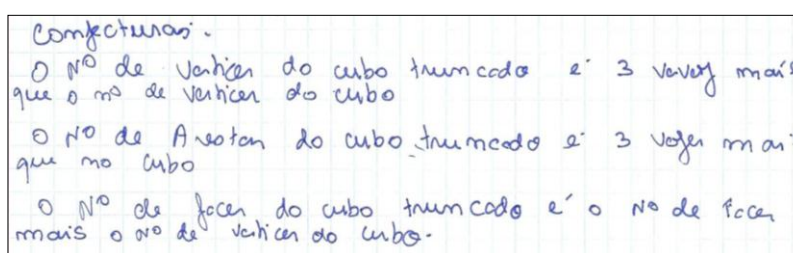 Conjecturas.
O Nº de vertices do cubo truncado é 3 vezes mais
que o nº de vertices do cubo
O Nº de Arestas do cubo truncado é 3 vezes mai
que no cubo
O Nº de faces do cubo truncado é o Nº de faces
mais o nº de vertices do cubo.